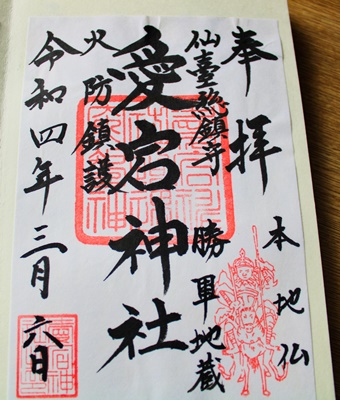 奉拝
本地仏
仙臺総鎮守
勝軍地蔵
愛宕神社
火防鎮護
令和四年三月六日